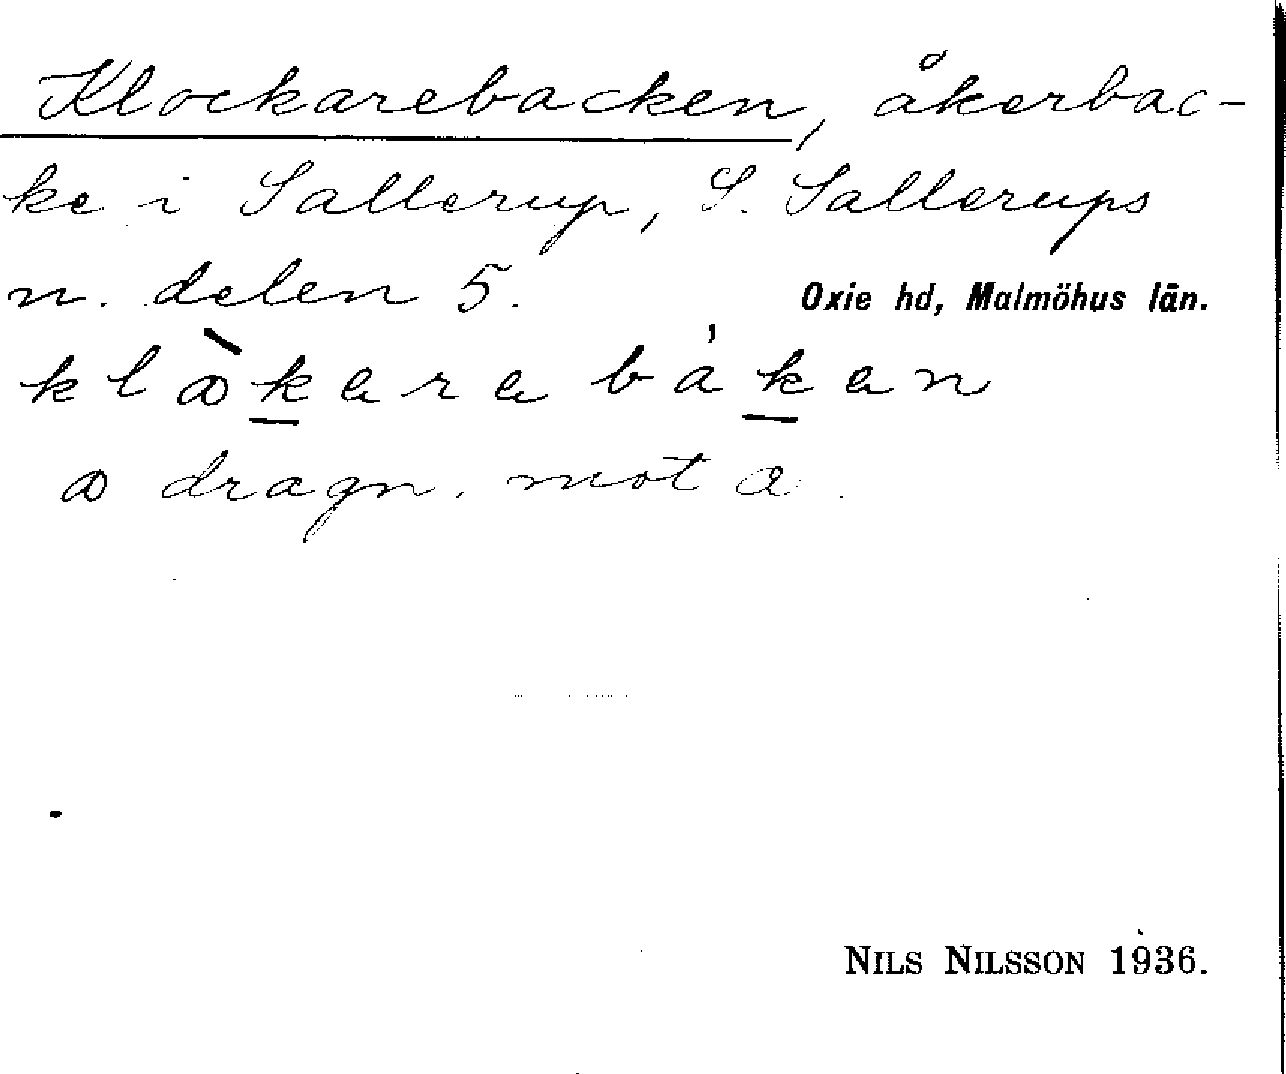 Klockarebacken, åkerbac-
ke i Sallerup, S. Sallerups
n. delen 5. Oxie hd, Malmöhus län.
klꝏ̀kara bákan
ꝏ dragn. mot a.
NILS NILSSON 1936.